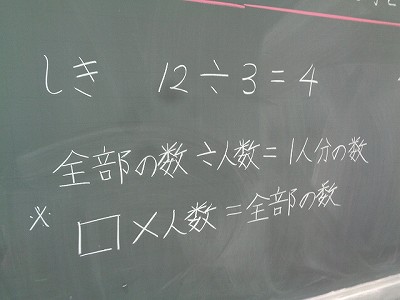 しき 12÷3=4
全部の数÷人数=1人分の数
※ □×人数=全部の数